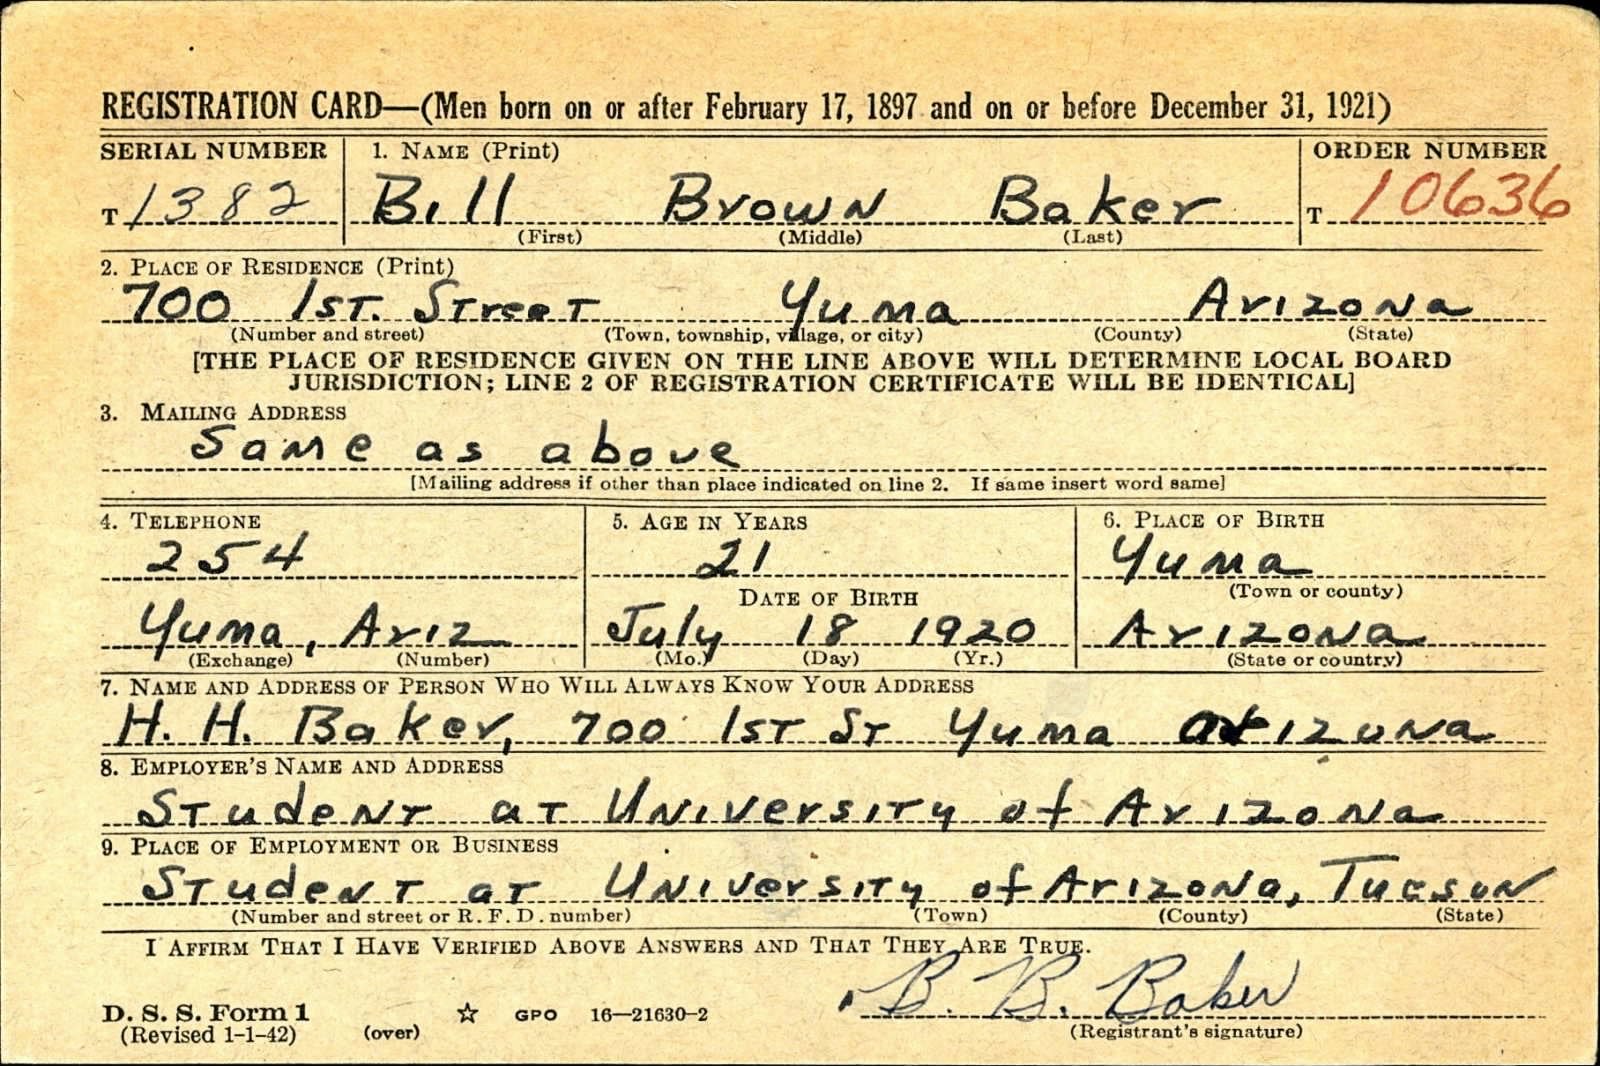 REGISTRATION CARD—(Men born on or after February 17, 1897 and on or before December 31, 1921)
SERIAL NUMBER 1. NAME (Print) ORDER NUMBER
T 1382 Bill Brown Baker T 10636
(First) (Middle) (Last)
2. PLACE OF RESIDENCE (Print)
700 1ST. Street Yuma Arizona
(Number and street) (Town, township, village, or city) (County) (State)
[THE PLACE OF RESIDENCE GIVEN ON THE LINE ABOVE WILL DETERMINE LOCAL BOARD
JURISDICTION; LINE 2 OF REGISTRATION CERTIFICATE WILL BE IDENTICAL]
3. MAILING ADDRESS
Same as above
[Mailing address if other than place indicated on line 2. If same insert word same]
4. TELEPHONE 5. AGE IN YEARS 6. PLACE OF BIRTH
254 21 Yuma
DATE OF BIRTH (Town or county)
Yuma, Ariz July 18 1920 Arizona
(Exchange) (Number) (Mo.) (Day) (Yr.) (State or country)
7. NAME AND ADDRESS OF PERSON WHO WILL ALWAYS KNOW YOUR ADDRESS
H. H. Baker, 700 1ST St Yuma Arizona
8. EMPLOYER'S NAME AND ADDRESS
Student at University of Arizona
9. PLACE OF EMPLOYMENT OR BUSINESS
Student at University of Arizona, Tucson
(Number and street or R. F. D. number) (Town) (County) (State)
I AFFIRM THAT I HAVE VERIFIED ABOVE ANSWERS AND THAT THEY ARE TRUE.
B. B. Baker
D. S. S. Form 1 ☆ GPO 16—21630-2
(Revised 1-1-42) (over) (Registrant's signature)